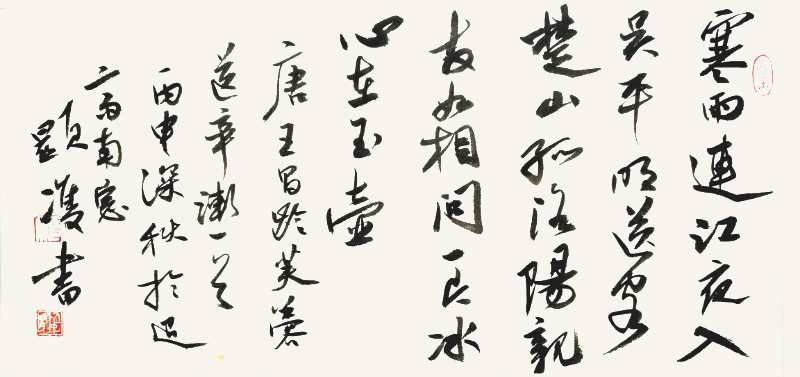 寒雨連江夜入
吳平明送客
楚山孤洛陽親
友如相問一片冰
心在玉壺
唐王昌齡芙蓉
送辛漸一首
丙申深秋於
南窓
顯書